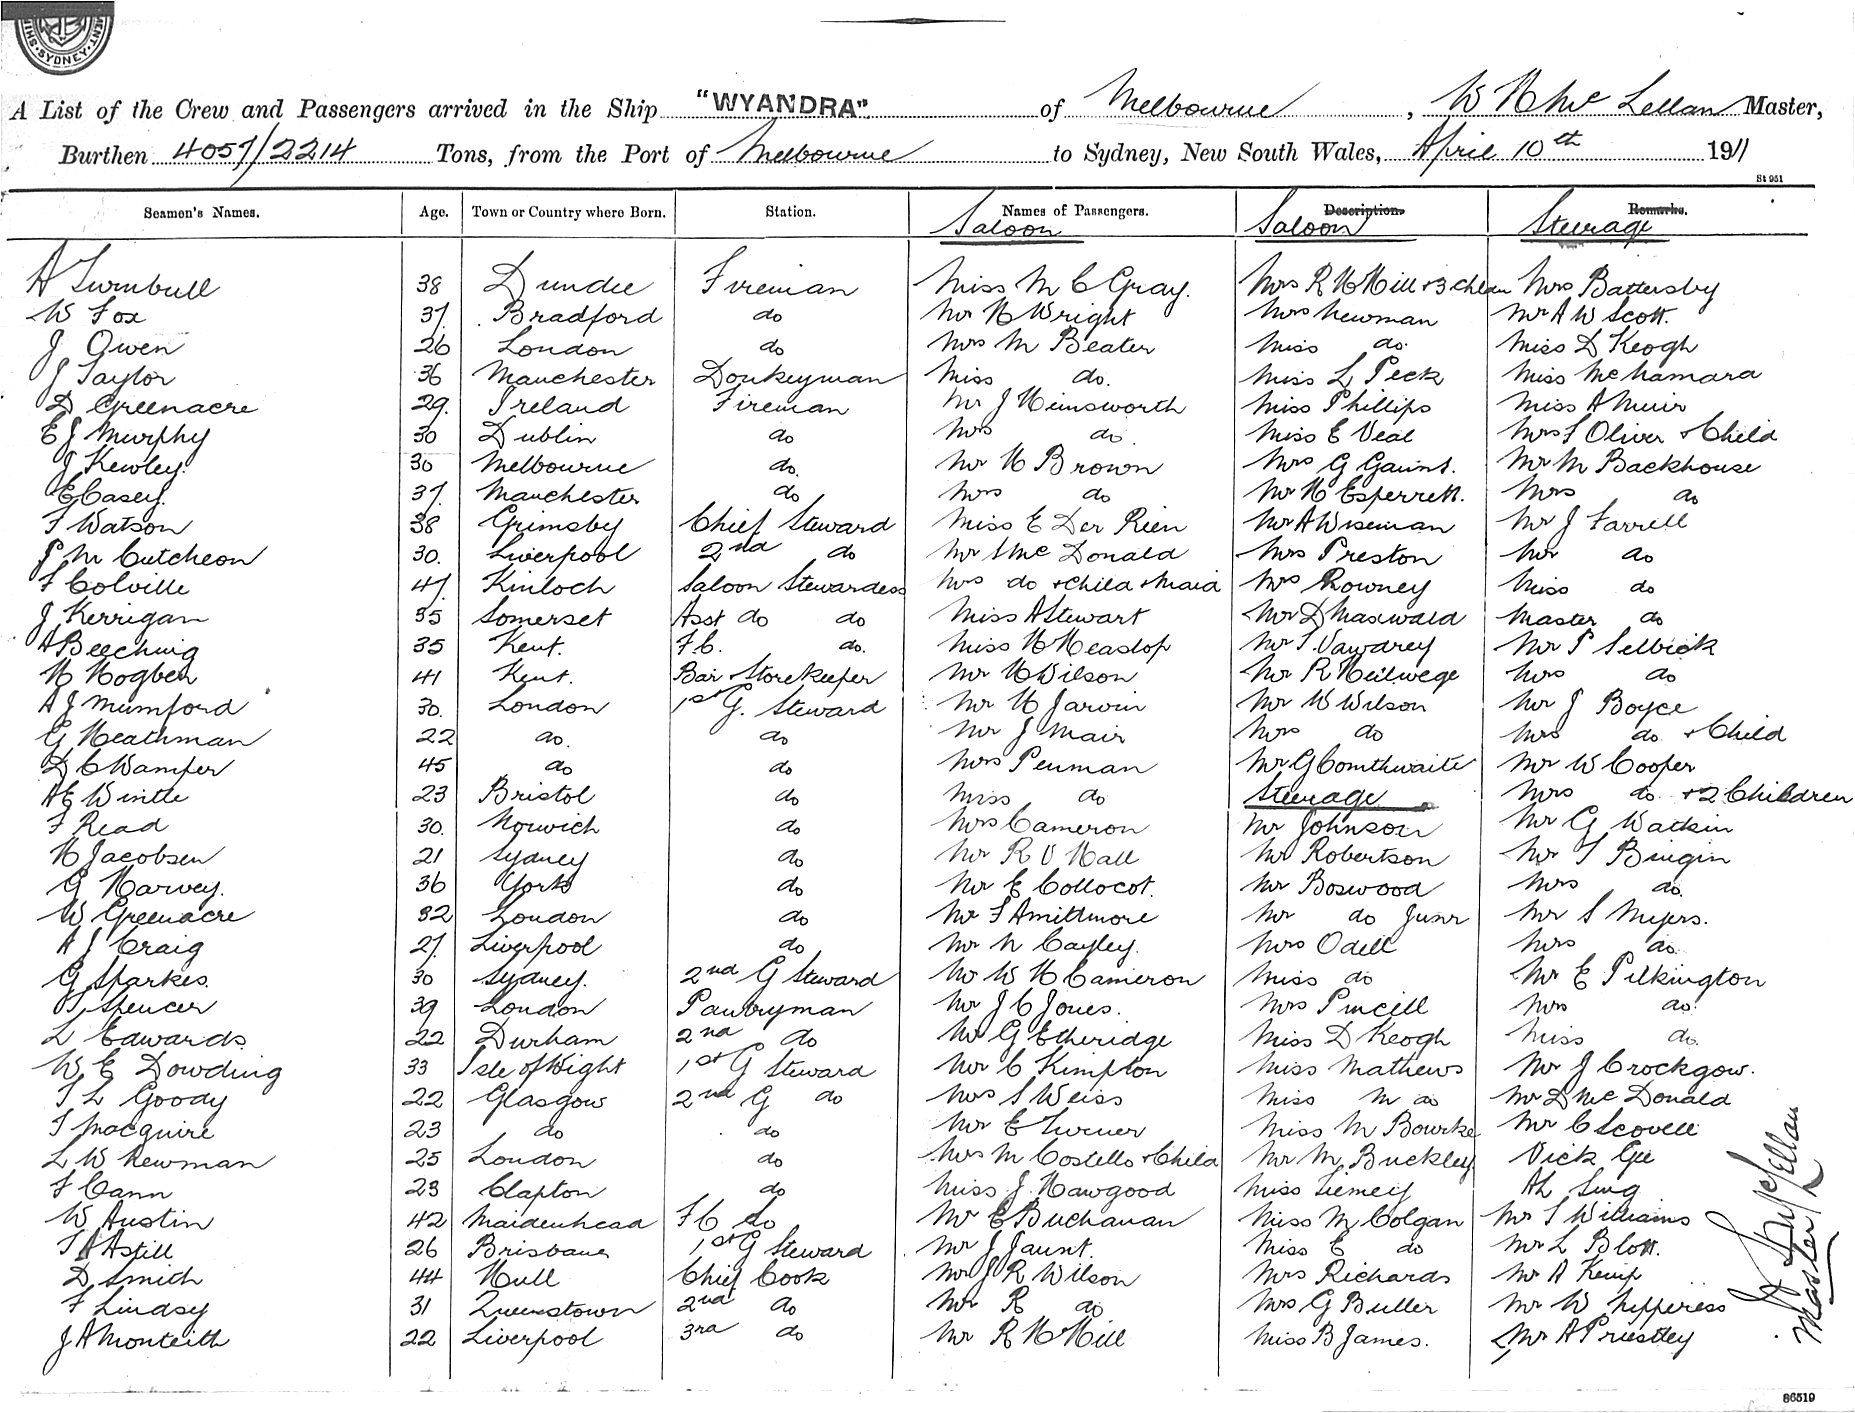 SYDNEY
A List of the Crew and Passengers arrived in the Ship "WYANDRA" of Melbourne, W H Mc Lellan Master,
Burthen 4057/2214 Tons, from the Port of Melbourne to Sydney, New South Wales, April 10th 1911
St 951
Seamen's Names. Age. Town or Country where Born. Station. Names of Passengers. Description. Remarks.
Saloon Saloon Steerage
A Turnbull 38 Dundee Fireman Miss M C Gray. Mrs R H Hill + 3 chldn Mrs Battersby
W Fox 37. Bradford do Mr H Wright Mrs Newman Mr A W Scott.
J Owen 26 London do Mrs M Beater Miss do. Miss D Keogh
J Taylor 36 Manchester Donkeyman Miss do. Miss L Peck Miss McNamara
D Greenacre 29. Ireland Fireman Mr J Hemsworth Miss Phillips Miss A Muir
E J Murphy 30 Dublin do Mrs do. Miss E Veal Mrs F Oliver + Child
J Kewley. 30 Melbourne do. Mr H Brown Mrs G Gaunt. Mr M Backhouse
E Casey. 37. Manchester do Mrs do Mr H Esperrett. Mrs do
F Watson 38 Grimsby Chief Steward Miss E Der Rien Mr A Wiseman Mr J Farrell
J McCutcheon 30. Liverpool 2nd do Mr McDonald Mrs Preston Mr do
F Colville 47. Kinloch Saloon Stewardess Mrs do + child + maid Mrs Rowney Miss do
J Kerrigan 35 Somerset Asst do do Miss A Stewart Mr D Maxwald Master do
A Beeching 35 Kent. F.C. do. Miss H Heaslop Mr S Vawdrey Mr P Selbick
H Hogben 41 Kent. Bar + Storekeeper Mr H Wilson Mr R Heilwege Mrs do
A J Mumford 30. London 1st G. Steward Mr H Jarvin Mr W Wilson Mr J Boyce
G Heathman 22 do. do Mr J Mair Mrs do Mrs do. + Child
D C Wamper 45 do do Mrs Penman Mr G Comthwaite Mr W Cooper
A E Wintle 23 Bristol do Miss do Steerage Mrs do + 2 Children
F Read 30. Norwich do Mrs Cameron Mr Johnson Mr G Watkin
H Jacobsen 21 Sydney do Mr R V Hall Mr Robertson Mr S Bingin
G Harvey. 36 York do Mr E Collocot. Mr Boswood Mrs do.
W Greenacre 32 London do Mr F Amittmore Mr do Junr Mr S Myers.
A J Craig 27. Liverpool do Mr N Cayley. Mrs Odell Mrs do.
G Sparkes. 30 Sydney. 2nd G Steward Mr W H Cameron Miss do Mr E Pilkington
Spencer 39 London Pantryman Mr J C Jones. Mrs Purcell Mrs do.
L Edwards 22 Durham 2nd do Mr G Etheridge Miss D Keogh Miss do.
W E Dowding 33 Isle of Wight 1st G Steward Mr C Kimpton Miss Mathews Mr J Crockgow.
T L Goody 22 Glasgow 2nd G do Mrs S Weiss Miss M do Mr D McDonald
T Macquire 23 do do Mr E Turner Miss M Bourke Mr C Scovell
L W Newman 25 London do Mrs M Costello + Child Mr M Buckley Vick Gee
F Cann 23 Clapton do Miss J Hawgood Miss Tiemey Ah Sing
W Austin 42 Maidenhead F C do Mr E Buchanan Miss M Colgan Mr T Williams
T A Astill 26 Brisbane 1st G Steward Mr J Jaunt. Miss E do Mr L Blott.
D Smith 44 Hull Chief Cook Mr J R Wilson Mrs Richards Mr A Kemp
F Lindsy 31 Queenstown 2nd do Mr R do Mrs G Buller Mr W Nipperess
J A Monteith 22 Liverpool 3rd do Mr R H Hill Miss B James. Mr A Priestley
W H McLellan
Master
86519